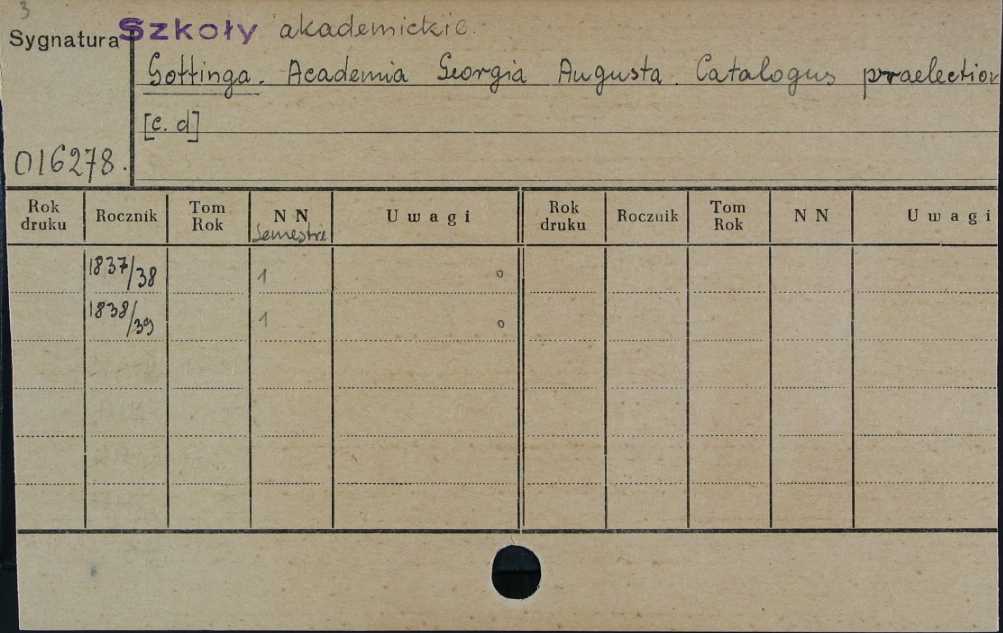 3
Szkoły akademickie.
Sygnatura
Gottinga. Academia Georgia Augusta. Catalogus praelection
[c. d]
016278.
Rok druku Rocznik Tom Rok NN Semestre Uwagi Rok druku Rocznik Tom Rok NN Uwagi
1837/38 1 o
1838/39 1 o